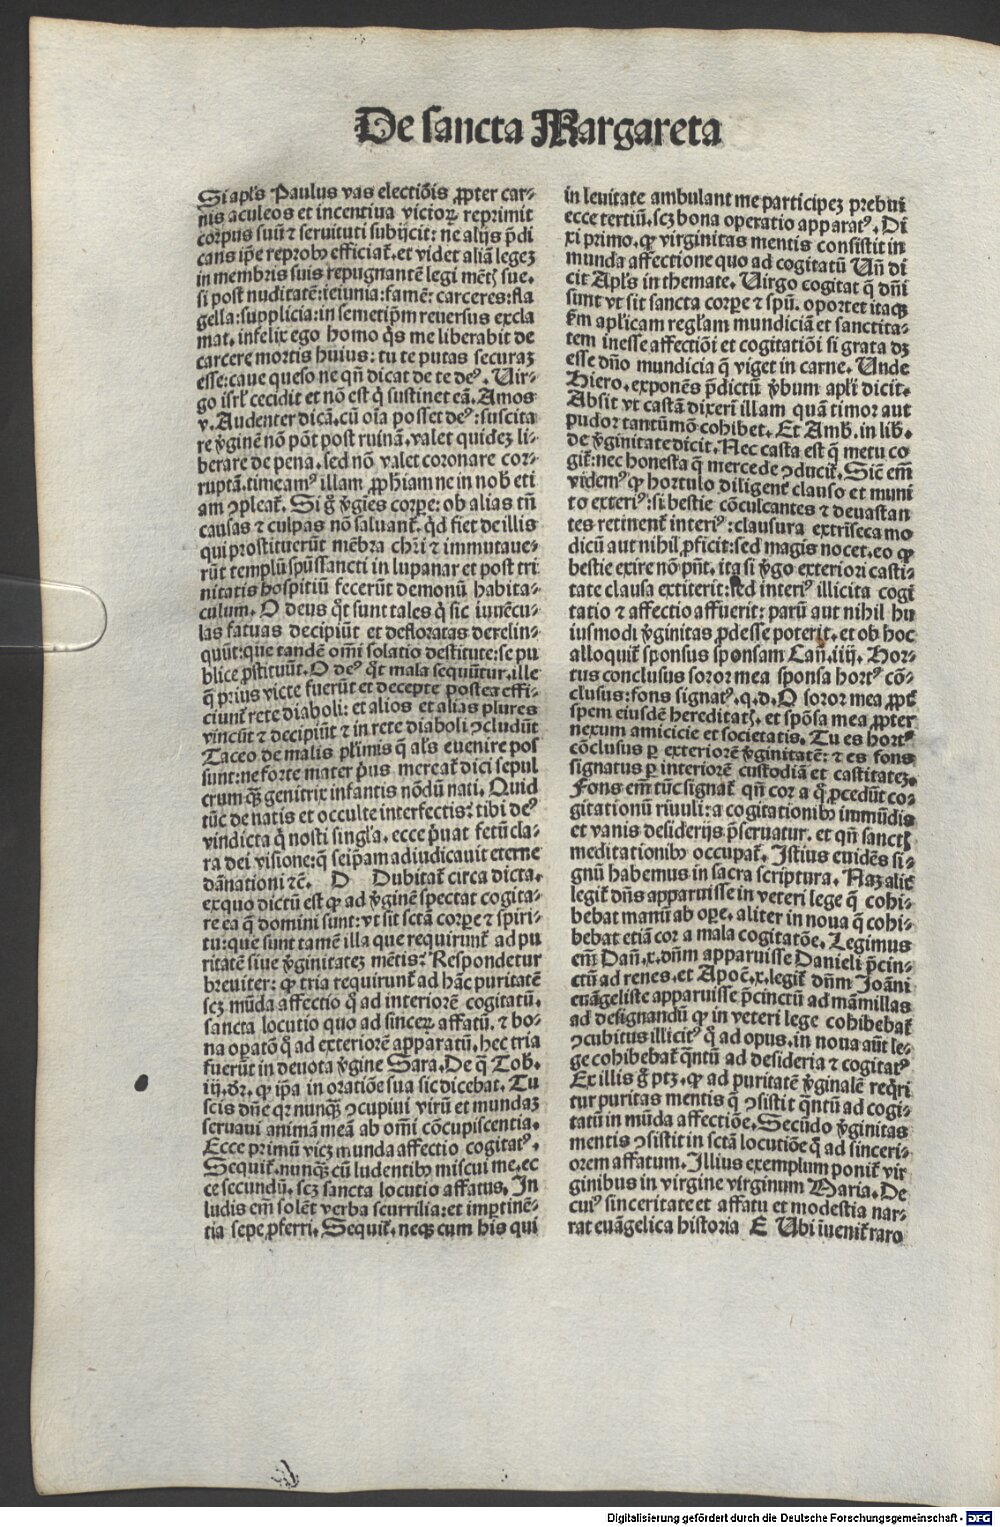 De sancta Margareta
Si apl̄s Paulus vas electiōis ꝓpter car-
nis aculeos et incentiua vicioꝝ reprimit
corpus suū ⁊ seruituti subijcit: ne alijs p̄di
cans ip̄e reprobꝰ efficiat̄. et videt aliā legeꝫ
in membris suis repugnantē legi mēt̄ sue.
si post nuditatē: ieiunia: famē: carceres: fla
gella: supplicia: in semetip̄m reuersus excla
mat. infelix ego homo q̇s me liberabit de
carcere mortis huius: tu te putas securaꝫ
esse: caue queso ne qn̄ dicat de te deꝰ. Uir-
go isrl̄ cecidit et nō est q̇ sustinet eā. Amos
v. Audenter dicā. cū oīa posset deꝰ: suscita
re v̄ginē nō pōt post ruinā. valet quideꝫ li-
berare de pena. sed nō valet coronare cor-
ruptā. timeamꝰ illam ꝓphiam ne in nob̄ eti
am ꝯpleat̄. Si g̊ v̄gīes corpe: ob alias tn̄
causas ⁊ culpas nō saluant̄. q̇d fiet de illis
qui prostituerūt mēbra chr̄i ⁊ immutaue-
rūt templū spūssancti in lupanar et post tri
nitatis hospitiū fecerūt demonū habita-
culum. O deus q̊t sunt tales q̇ sic iuuēcu-
las fatuas decipiūt et defloratas derelin-
quūt: que tandē om̄i solatio destitute: se pu
blice ꝓstituūt. O deꝰ q̊t mala sequūtur. ille
q̄ prius victe fuerūt et decepte postea effi-
ciunt̄ rete diaboli: et alios et alias plures
vincūt ⁊ decipiūt ⁊ in rete diaboli ꝯcludūt
Taceo de malis pl̄imis q̄ al̄s euenire pos
sunt: ne forte mater p̄us mereat̄ dici sepul
crum qꝫ̄ genitrix infantis nōdū nati. Quid
tūc de natis et occulte interfectis? tibi deꝰ
vindicta q̇ nosti singl̄a. ecce p̄uat fetū cla-
ra dei visione: q̄ seip̄am adiudicauit eterne
dānationi ⁊c̄. D Dubitat̄ circa dicta.
exquo dictū est ꝙ ad v̄ginē spectat cogita-
re ea q̄ domini sunt: vt sit sctā corpe ⁊ spiri-
tu: que sunt tamē illa que requirunt̄ ad pu
ritatē siue v̄ginitateꝫ mētis? Respondetur
breuiter: ꝙ tria requirunt̄ ad hāc puritatē
scꝫ mūda affectio q̊ ad interiorē cogitatū.
sancta locutio quo ad sinceꝝ affatū. ⁊ bo-
na oꝑatō q̊ ad exteriorē apparatū. hec tria
fuerūt in deuota v̄gine Sara. De q̄ Tob.
iij. dr̄. ꝙ ip̄a in oratiōe sua sic dicebat. Tu
scis dn̄e qꝛ nunqꝫ̄ ꝯcupiui virū et mundaꝫ
seruaui animā meā ab om̄i cōcupiscentia.
Ecce primū vicꝫ munda affectio cogitatꝰ.
Sequit̄. nunqꝫ̄ cū ludentibꝰ miscui me. ec
ce secundū. scꝫ sancta locutio affatus. In
ludis em̄ solēt verba scurrilia: et imꝑtinē-
tia sepe ꝓferri. Sequit̄. neqꝫ cum his qui
in leuitate ambulant me participeꝫ prebui
ecce tertiū. scꝫ bona operatio apparatꝰ. Di
xi primo. ꝙ virginitas mentis consistit in
munda affectione quo ad cogitatū Un̄ di
cit Apl̄s in themate. Uirgo cogitat q̄ dn̄i
sunt vt sit sancta corpe ⁊ spū. oportet itaqꝫ
ẜm apl̄icam regl̄am mundiciā et sanctita-
tem inesse affectiōi et cogitatiōi si grata dꝫ
esse dn̄o mundicia q̄ viget in carne. Unde
Hiero. exponēs p̄dictū v̄bum apl̄i dicit.
Absit vt castā dixeri illam quā timor aut
pudor tantūmō cohibet. Et Amb. in lib.
de v̄ginitate dicit. Nec casta est q̄ metu co
git̄: nec honesta q̄ mercede ꝯducit̄. Sic em̄
videmꝰ ꝙ hortulo diligent̄ clauso et muni
to exteriꝰ: si bestie cōculcantes ⁊ deuastan
tes retinent̄ interiꝰ: clausura extrīseca mo
dicū aut nihil ꝓficit: sed magis nocet. eo ꝙ
bestie exire nō pn̄t. ita si v̄go exteriori casti-
tate clausa extiterit: sed interiꝰ illicita cogi
tatio ⁊ affectio affuerit: parū aut nihil hu
iusmodi v̄ginitas ꝓdesse poterit. et ob hoc
alloquit̄ sponsus sponsam Cañ. iiij. Hor-
tus conclusus soror mea sponsa hortꝰ cō-
clusus: fons signatꝰ. q. d. O soror mea ꝓpt̄
spem eiusdē hereditat̄. et spōsa mea ꝓpter
nexum amicicie et societatis. Tu es hortꝰ
cōclusus ꝑ exteriorē v̄ginitatē: ⁊ es fons
signatus ꝑ interiorē custodiā et castitateꝫ.
Fons em̄ tūc signat̄ qn̄ cor a q̊ ꝓcedūt co-
gitationū riuuli: a cogitationibꝰ immūdis
et vanis desiderijs p̄seruatur. et qn̄ sanct̄
meditationibꝰ occupat̄. Istius euidēs si-
gnū habemus in sacra scriptura. Naꝫ alit̄
legit̄ dn̄s apparuisse in veteri lege q̄ cohi-
bebat manū ab oꝑe. aliter in noua q̄ cohi-
bebat etiā cor a mala cogitatōe. Legimus
em̄ Dañ. x. dn̄m apparuisse Danieli p̄cin-
ctū ad renes. et Apoc̄. x. legit̄ dn̄m Ioāni
euāgeliste apparuisse p̄cinctū ad māmillas
ad designandū ꝙ in veteri lege cohibebat̄
ꝯcubitus illicitꝰ q̊ ad opus. in noua aūt le-
ge cohibebat̄ q̄ntū ad desideria ⁊ cogitatꝰ
Ex illis g̊ ptꝫ. ꝙ ad puritatē v̄ginalē req̇ri
tur puritas mentis q̄ ꝯsistit q̄ntū ad cogi-
tatū in mūda affectiōe. Secūdo v̄ginitas
mentis ꝯsistit in sctā locutiōe q̊ ad sinceri-
orem affatum. Illius exemplum ponit̄ vir
ginibus in virgine virginum Maria. De
cuiꝰ sinceritate et affatu et modestia nar-
rat euāgelica historia E Ubi īuenit̄ raro
Digitalisierung gefördert durch die Deutsche Forschungsgemeinschaft - DFG